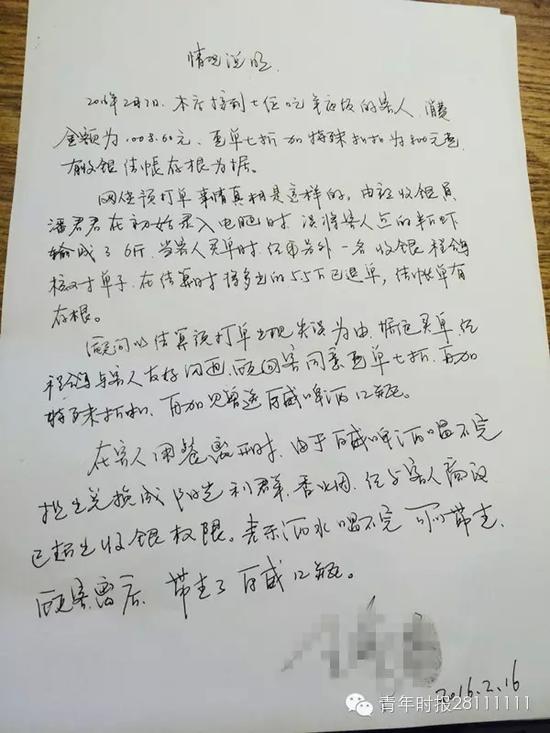 情况说明
2016年2月7日,本店接到七位吃年夜饭的客人,消费
金额为1008.60元,要单七折加特殊折扣为800元整,
有收银结帐存根为据。
网传预打单事情真相是这样的,由经收银员
潘君君在初始录入电脑时,误将客人点的半斤虾
输成了6斤,当客人买单时,经由另外一名收银程
核对单子,在结算时将多出的5.5斤已退单,结帐单有
存根。
顾问以结算预打单出现失误为由,拒绝买单,经
与客人友好沟通,顾客同意要单七折,再加
特殊折扣,再加赠送百威啤酒12瓶。
在客人用餐离开时,由于百威啤酒喝不完
提出兑换成阳光利群香烟,经与客人商议
已超出收银权限。表示酒水喝不完可以带走,
顾客最后带走了百威12瓶。
2016.2.16
青年时报28111111